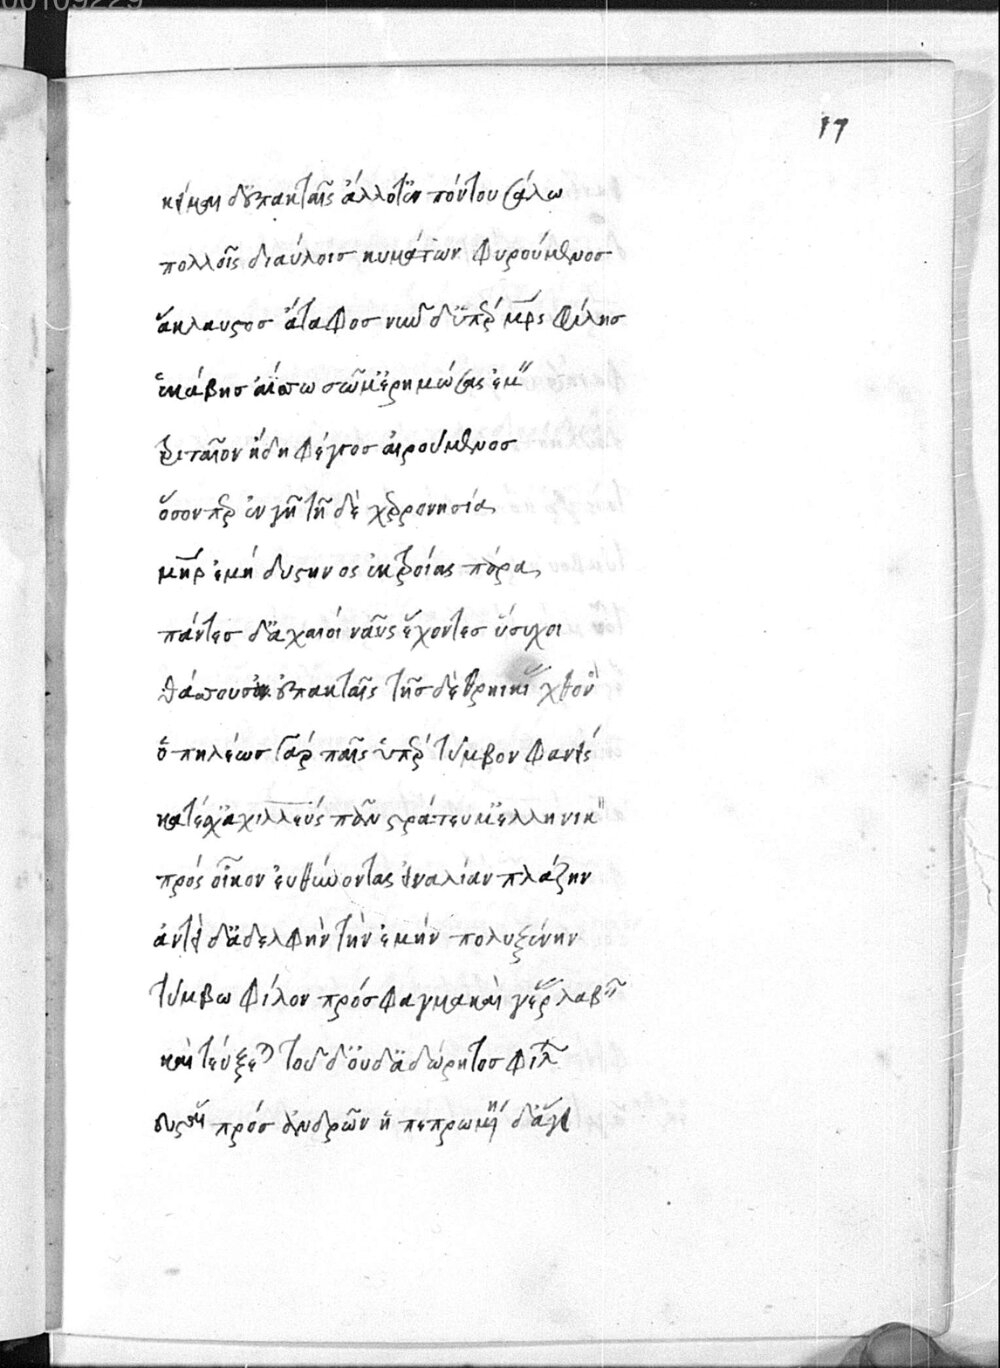 00109229
17
κεῖμαι δ' ἐπ' ἀκταῖς ἄλλοτ' ἐν πόντου σάλω
πολλοῖς διαύλοισ κυμάτων φυρούμενοσ
ἄκλαυστοσ ἄταφοσ νῦν δ' ὑπὲρ μητρός φίλησ
ἑκάβησ ἀίσσω σῶμ' ἐρημώσας ἐμὸν
τριταῖον ἤδη φέγγοσ αἰρούμενοσ
ὅσονπερ ἐν γῆ τῆ δὲ χερρονησία
μήτηρ ἐμή δύστηνος ἐκ τροίας πάρα
πάντεσ δ' ἀχαιοί ναῦς ἔχοντεσ ἥσυχοι
θάσσουσιν ἐπ' ἀκταῖς τῆσ δὲ θρηικίας χθονός
ὁ πηλέωσ γάρ παῖς ὑπέρ τύμβου φανείς
κατέσχ' ἀχιλλεύς πᾶν στράτευμ' ἑλληνικὸν
πρός οἶκον εὐθύνοντας ἐναλίαν πλάτην
αἰτεῖ δ' ἀδελφήν τήν ἐμήν πολυξένην
τύμβω φίλον πρόσφαγμα καὶ γέρας λαβεῖν
καὶ τεύξεται τοῦδ' οὐδ' ἀδώρητοσ φίλων